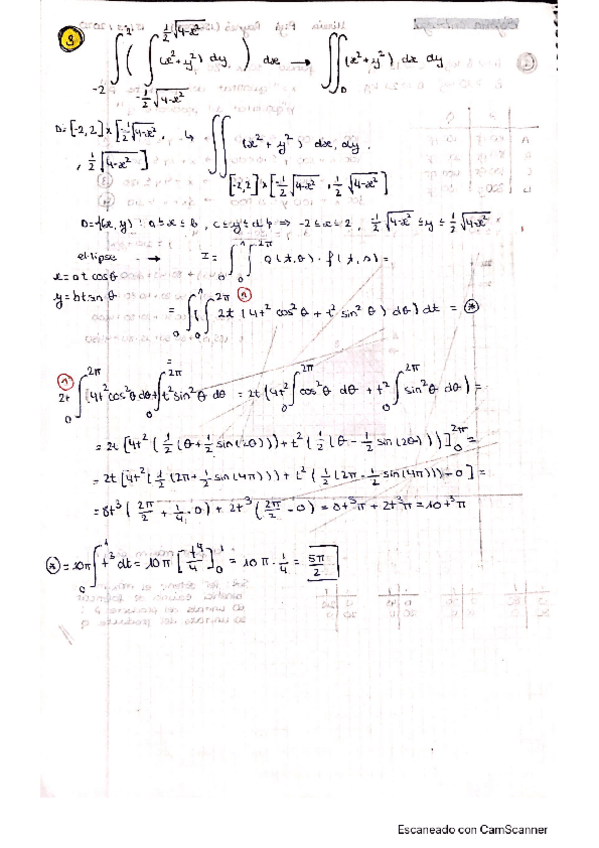 3
∫_{-2}^{2} ( ∫_{-½√(4-x²)}^{½√(4-x²)} (x²+y²) dy ) dx → ∬_D (x²+y²) dx dy
D=[-2,2]×[-½√(4-x²), ½√(4-x²)] ↳ ∬_{[-2,2]×[-½√(4-x²), ½√(4-x²)]} (x²+y²) dx, dy.
D={(x,y) : a≤x≤b, c≤y≤d} ⇒ -2≤x≤2, -½√(4-x²) ≤y≤ ½√(4-x²)
elipse → I = ∫_0^1 ∫_0^{2π}
x = at cosθ
y = bt sin θ
= ∫_0^1 ( ∫_0^{2π} 2t (4t² cos²θ + t² sin²θ) dθ) dt = (*)
(1) 2t ∫_0^{2π} (4t² cos²θ dθ + t² sin²θ dθ = 2t (4t² ∫_0^{2π} cos²θ dθ + t² ∫_0^{2π} sin²θ dθ) =
= 2t [4t² (½ (θ+½ sin(2θ))) + t² (½ (θ - ½ sin(2θ)))]_0^{2π} =
= 2t [4t² (½ (2π+½ sin(4π))) + t² (½ (2π - ½ sin(4π))) - 0] =
= 8t³ (2π/2 + ¼·0) + 2t³ (2π/2 - 0) = 8t³π + 2t³π = 10t³π
(*) = 10π ∫_0^1 t³ dt = 10π [t⁴/4]_0^1 = 10π · ¼ = 5π/2
Escaneado con CamScanner